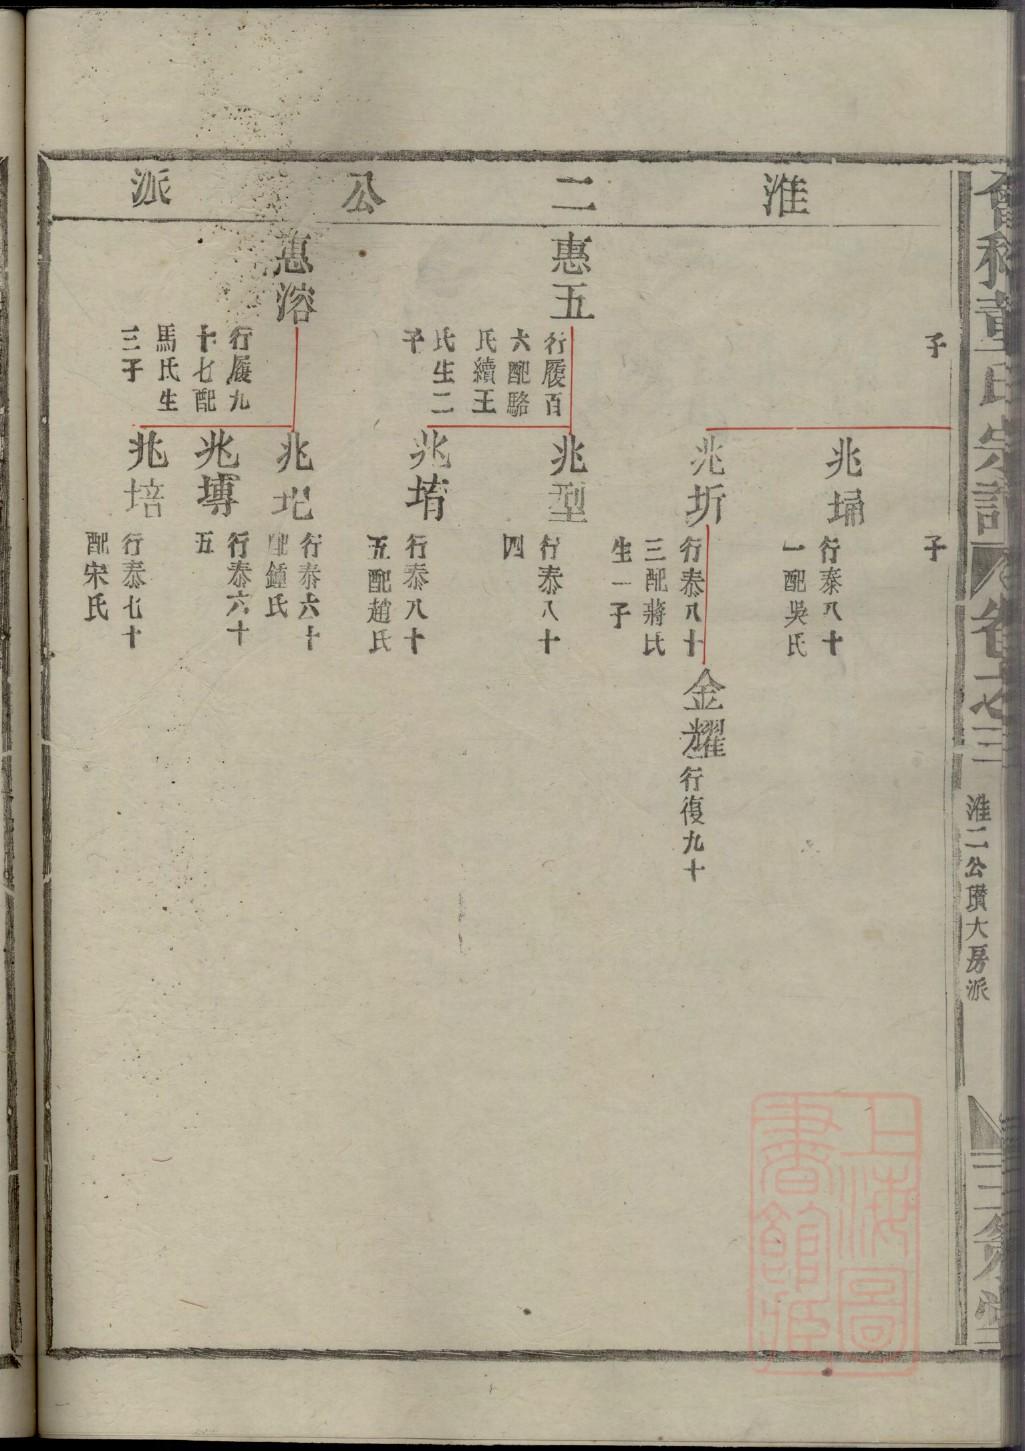 董氏宗譜
卷
三
淮二公瓚大房派
淮二公派
子
子
兆埇
行泰八十
一配吳氏
兆圻
行泰八十
三配蔣氏
生一子
金耀
行復九十
惠五
行履百
六配駱
氏續王
氏生二
子
兆型
行泰八十
四
兆堉
行泰八十
五配趙氏
惠溶
行履九
十七配
馬氏生
三子
兆圯
行泰六十
配鍾氏
兆塼
行泰六十
五
兆培
行泰七十
配宋氏
上海圖
書館藏